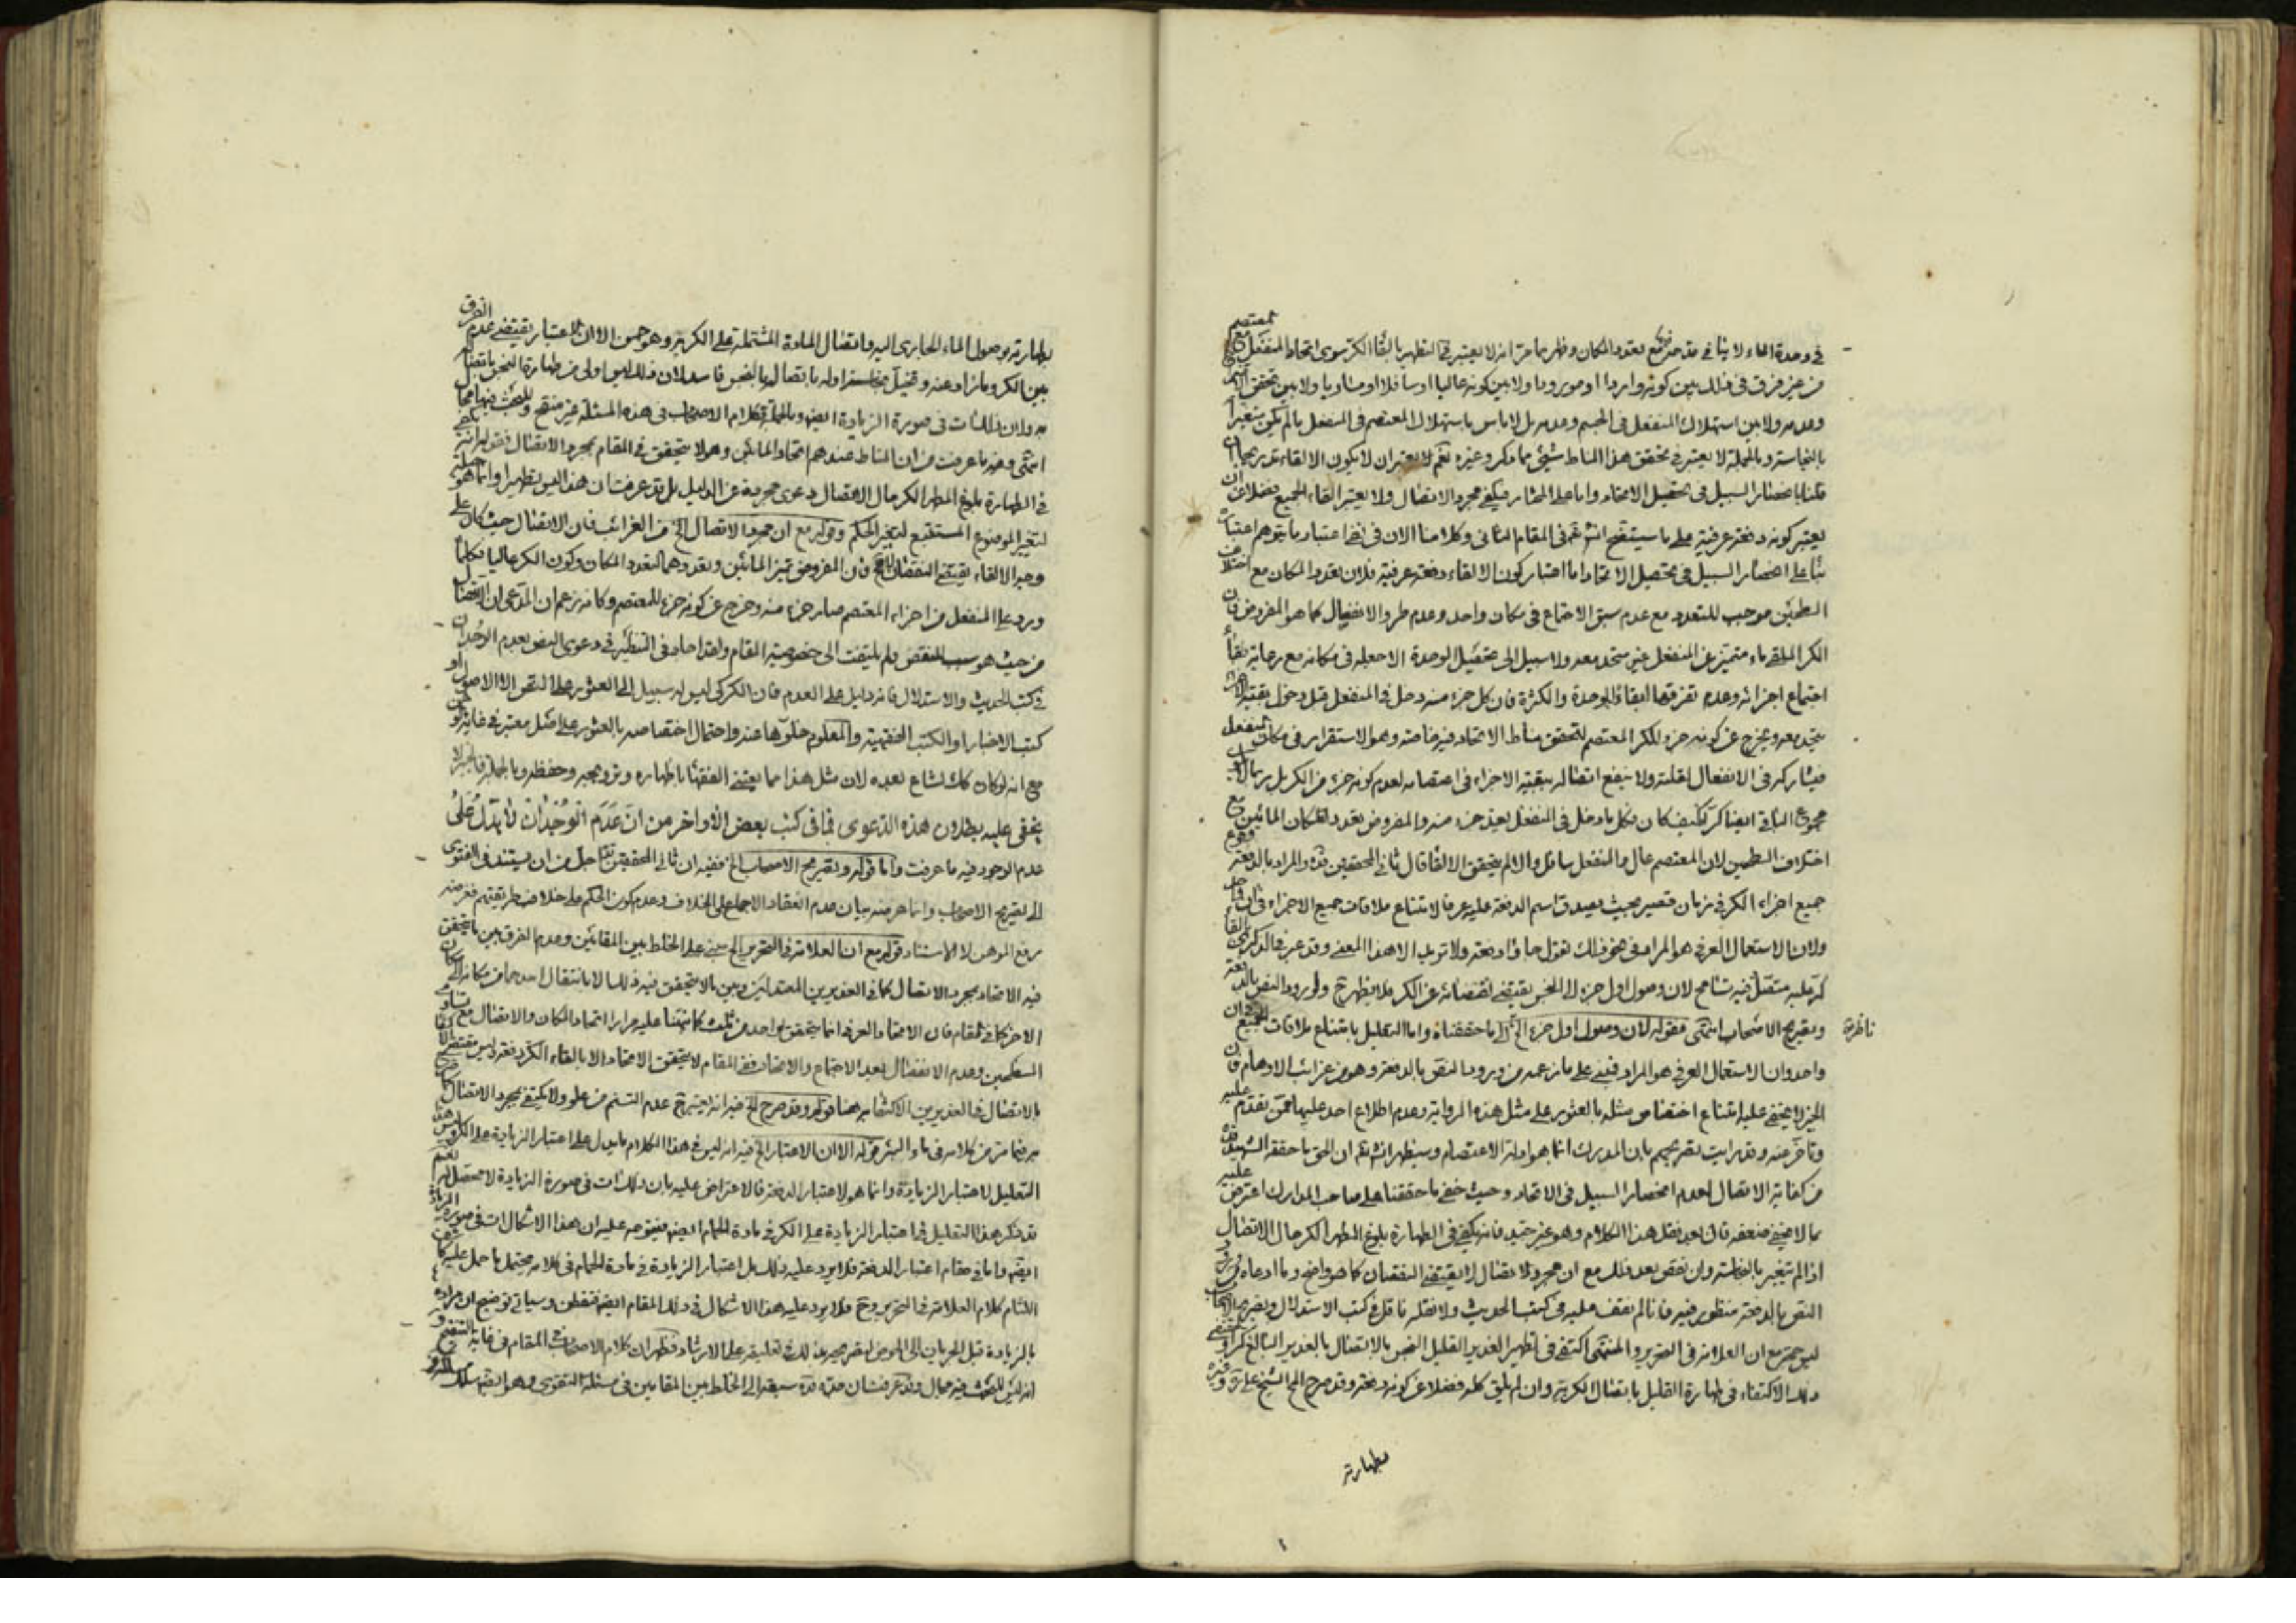 في وحدة الماء لا ينافي تعدد المكان وظهر مما مر انه لا يعتبر في التطهير بالقاء الكر سوى اتحاد المنفعل مع المعتصم
من غير فرق في ذلك بين كونه واردا او مورودا ولا بين كونه عاليا او سافلا او مساويا ولا بين تحقق
وعدمه ولا بين استهلاك المنفعل في الجسم وعدمه بل لا باس باستهلاك المعتصم في المنفعل ما لم يكن متغيرا
بالنجاسة وبالجملة لا يعتبر في تحقق هذا المناط شيء مما ذكر وغيره نعم لا يعتبر ان لا يكون الالقاء تدريجا
قلنا بانحصار السبيل في تحصيل الاتحاد واما على المختار فيكفي مجرد الاتصال ولا يعتبر القاء الجميع فضلا عن ان
يعتبر كونه دفعة عرفية على ما سيتضح انش تعم في المقام الثاني وكلامنا الان في نفي اعتبار ما يتوهم اعتباره
بناء على انحصار السبيل في تحصيل الاتحاد اما اعتبار كون الالقاء دفعة عرفية فلان تعدد المكان مع اختلاف
السطحين موجب للتعدد مع عدم سبق الاجتماع في مكان واحد وعدم طرو الانفصال كما هو المفروض فان
الكر الملقى ماء متميز عن المنفعل غير متحد معه ولا سبيل الى تحصيل الوحدة الا جعله في مكانه مع رعاية بقاء
اجتماع اجزائه وعدم تفرقها ابقاء للوحدة والكثرة فان كل جزء منه دخل في المنفعل قبل دخول بقية الاجزاء
يتحد معه ويخرج عن كونه جزء للكر المعتصم لتحقق مناط الاتحاد فيه خاصة وهو الاستقرار في مكان المنفعل
فيشاركه في الانفعال لقلته ولا ينفع اتصاله ببقية الاجزاء في اعتصامه لعدم كونه جزء من الكر بل
مجموع الباقي ايضا كر فكيف كان فكل ما دخل في المنفعل يعد جزء منه والمفروض تعدد المكان المائين مع
اختلاف السطحين لان المعتصم عال والمنفعل سافل والا لم يتحقق الالقاء قال ثاني المحققين قده والمراد بالدفعة وقوع
جميع اجزاء الكر في زمان قصير بحيث يصدق اسم الدفعة عليه عرفا لامتناع ملاقات جميع الاجزاء في ان واحد
ولان الاستعمال العرفي هو المراد في نحو ذلك تقول جاؤا دفعة ولا تريد الا هذا المعنى وقد عبر في الذكرى بالقاء
كر عليه متصل فيه تسامح لان وصول اول جزء الى النجس يقتضي نقصانه عن الكر فلا يطهر ح ولورود النص بالدفعة
وتصريح الاصحاب انتهى فقوله لان وصول اول جزء الخ الى ما حققناه واما التعليل بامتناع ملاقات الجميع في ان
ناظرة
واحد وان الاستعمال العرفي هو المراد فمبني على ما زعمه من ورود النص بالدفعة وهو من غرائب الاوهام فان
الخبر لا يخفى عليه امتناع اختصاص مثله بالعثور على مثل هذه الرواية وعدم اطلاع احد عليها ممن تقدم عليه
وتاخر عنه وقد رايت تصريحهم بان المدرك انما هو ادلة الاعتصام وسيظهر انش تعم ان الحق ما حققه الشهيد قده
من كفاية الاتصال لعدم انحصار السبيل في الاتحاد وحيث خفي ما حققنا على صاحب المدارك اعترض عليه
بما لا يخفى ضعفه قال بعد نقل هذا الكلام وهو غير جيد فانه يكفي في الطهارة بلوغ المطهر الكر حال الاتصال
اذا لم يتغير بالنجاسة وان نقص بعد ذلك مع ان مجرد الاتصال لا يقتضي النقصان كما هو واضح وما ادعاه من ورود
النص بالدفعة منظور فيه فانا لم نقف عليه في كتب الحديث ولا نقله ناقل في كتب الاستدلال وتصريح الاصحاب
ليس حجة مع ان العلامة في التحرير والمنتهى اكتفى في تطهير الغدير القليل النجس بالاتصال بالغدير البالغ كرا ومقتضى
ذلك الاكتفاء في طهارة القليل باتصال الكر به وان لم يلق كله فضلا عن كونه دفعة وقد صرح الشيخ علي ره وغيره
بطهارته
بطهارته بوصول الماء الجاري اليه واتصال المادة المشتملة على الكر به وهو حسن الا ان الاعتبار يقتضي عدم الفرق
بين الكر وما زاد عنه وتخيل نجاسة اوله باتصاله بالنجس فاسد لان ذلك ليس اولى من طهارة النجس باتصاله
به ولان ذلك ات في صورة الزيادة ايضه وبالجملة فكلام الاصحاب في هذه المسئلة غير منقح وللبحث فيها مجال
انتهى وفيه ما عرفت من ان المناط عندهم اتحاد المائين وهو لا يتحقق في المقام بمجرد الاتصال فقوله انه يكفي
في الطهارة بلوغ المطهر الكر حال الاتصال دعوى مجردة عن الدليل بل قد عرفت ان هذا ليس تطهيرا وانما هو
لتغير الموضوع المستتبع لتغير الحكم وقوله مع ان مجرد الاتصال الخ من الغرائب فان الاتصال حيث كان على
وجه الالقاء يقتضي النقصان فان المفروض تميز المائين وتعددهما لتعدد المكان وكون الكر عاليا فكلما
ورد على المنفعل من اجزاء المعتصم صار جزء منه وخرج عن كونه جزء للمعتصم وكانه زعم ان المدعى ان الاتصال
من حيث هو سبب للنقص ولم يلتفت الى خصوصية المقام ولقد اجاد في التنظير في دعوى النص بعدم الوجدان
في كتب الحديث والاستدلال فانه دليل على العدم فان الكركي ليس له سبيل الى العثور على النص الا الاصول او
كتب الاخبار او الكتب الفقهية والمعلوم خلوها عنه واحتمال اختصاصه بالعثور على اصل معتبر في غاية
مع انه لو كان كك لشاع بعده لان مثل هذا مما يعتني الفقهاء باظهاره وترويجه وحفظه وبالجملة
يخفى عليه بطلان هذه الدعوى فما في كتب بعض الاواخر من ان عدم الوجدان لا يدل على
عدم الوجود فيه ما عرفت واما قوله وتصريح الاصحاب الخ ففيه ان ثاني المحققين اجل من ان يستند في الفتوى
الى تصريح الاصحاب وانما غرضه بيان عدم انعقاد الاجماع على الخلاف وعدم كون الحكم على خلاف طريقتهم فغرضه
رفع الوهن لا الاستناد قوله مع ان العلامة في التحرير الخ مبني على الخلط بين المقامين وعدم الفرق بين ما يتحقق
فيه الاتحاد بمجرد الاتصال كما في الغديرين المعتدلين وبين ما لا يتحقق فيه ذلك الا بانتقال احدهما من مكانه الى مكان
الاخر كما في المقام فان الاتحاد العرفي انما يتحقق بواحد من ثلث كما نبهنا عليه مرارا اتحاد المكان والاتصال مع تساوي
السطحين وعدم الانفصال بعد الاجتماع والاتحاد ففي المقام لا يتحقق الاتحاد الا بالقاء الكر دفعة وليس مقتضى الاكتفاء
بالاتصال في الغديرين الاكتفاء به هنا قوله وقد صرح الخ فيه انه اعتبر ح عدم التسنم من علو ولا يكتفي بمجرد الاتصال كما صرح
به فيما مر من كلامه في ماء البئر قوله الا ان الاعتبار الخ فيه انه ليس في هذا الكلام ما يدل على اعتبار الزيادة على الكر وليس هذا
التعليل لاعتبار الزيادة وانما هو لاعتبار الدفعة فالاعتراض عليه بان ذلك ات في صورة الزيادة لا محصل له نعم
قد ذكر هذا التعليل في اعتبار الزيادة على الكر في مادة الحمام ايضه فيتوجه عليه ان هذا الاشكال ات في صورة الزيادة
ايضه واما في مقام اعتبار الدفعة فلا يرد عليه ذلك بل اعتبار الزيادة في مادة الحمام في كلامه محتمل ما حمل عليه
كلام العلامة في التحرير وح فلا يرد عليه هذا الاشكال في ذلك المقام ايضه فتفطن وسياتي توضيح ان مراده
بالزيادة قبل الجريان الى الحوض لتصريحه بذلك في تعليقه على الارشاد فظهر ان كلام الاصحاب في المقام في غاية التنقيح و
انه ليس للبحث فيه مجال وقد عرفت ان قده سبقه الى الخلط بين المقامين في مسئلة التقوى وهو ايضه سلك